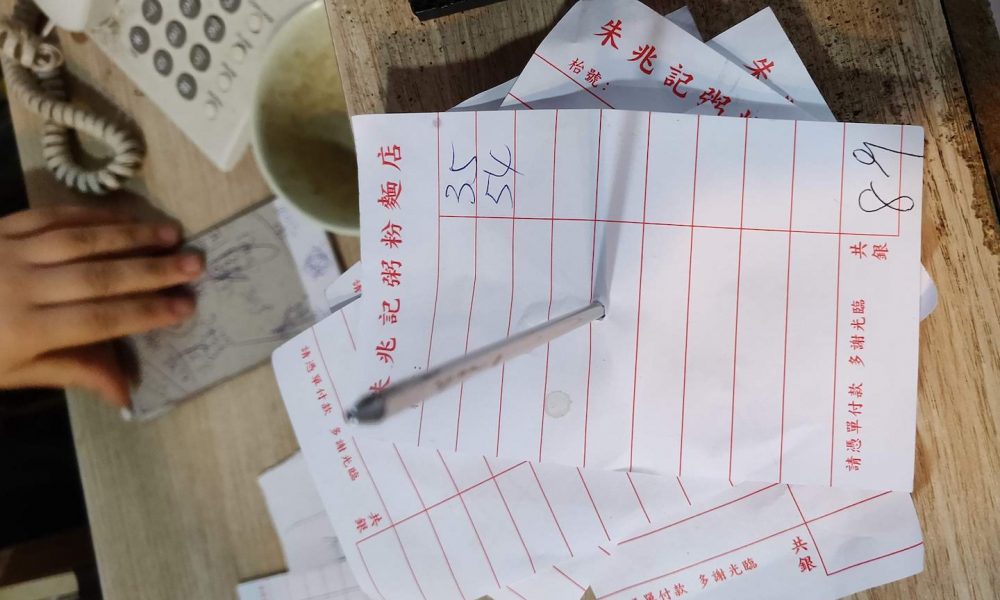 朱兆記粥粉麵店
35
54
共銀
89
請憑單付款 多謝光臨
朱兆記粥粉
枱號：
朱
請憑單付款 多謝光臨
共銀
單付款 多謝光臨
共銀